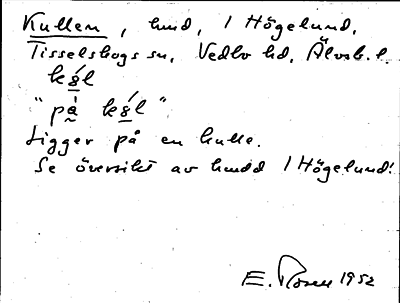 Kullen, hmd, 1 Högelund,
Tisselskogs sn, Vedbo hd, Älvsb. l.
"på
Ligger på en kulle.
Se översikt av hmdd 1 Högelund!
E. Rosen 1952